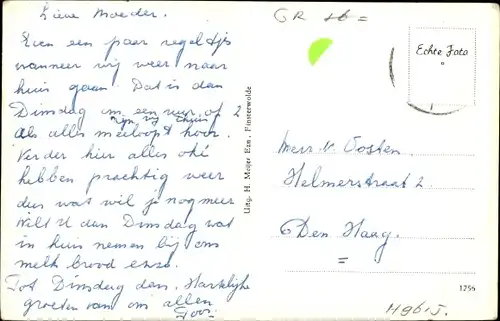 Lieve Moeder.
Even een paar regeltjes
wanneer wij weer naar
huis gaan. Dat is dan
Dinsdag om een uur of 2
zijn wij thuis
als alles meeloopt hoor.
Verder hier alles oké
hebben prachtig weer
dus wat wil je nog meer
Wilt U dan Dinsdag wat
in huis nemen bij ons
melk brood enzo.
Tot Dinsdag dan. Hartelijke
groeten van ons allen
Toos.
Uitg. H. Meijer Ezn. Finsterwolde
GR
Echte Foto
Oosten.
Helmerstraat 2
Den Haag.
=
1259
H9615.